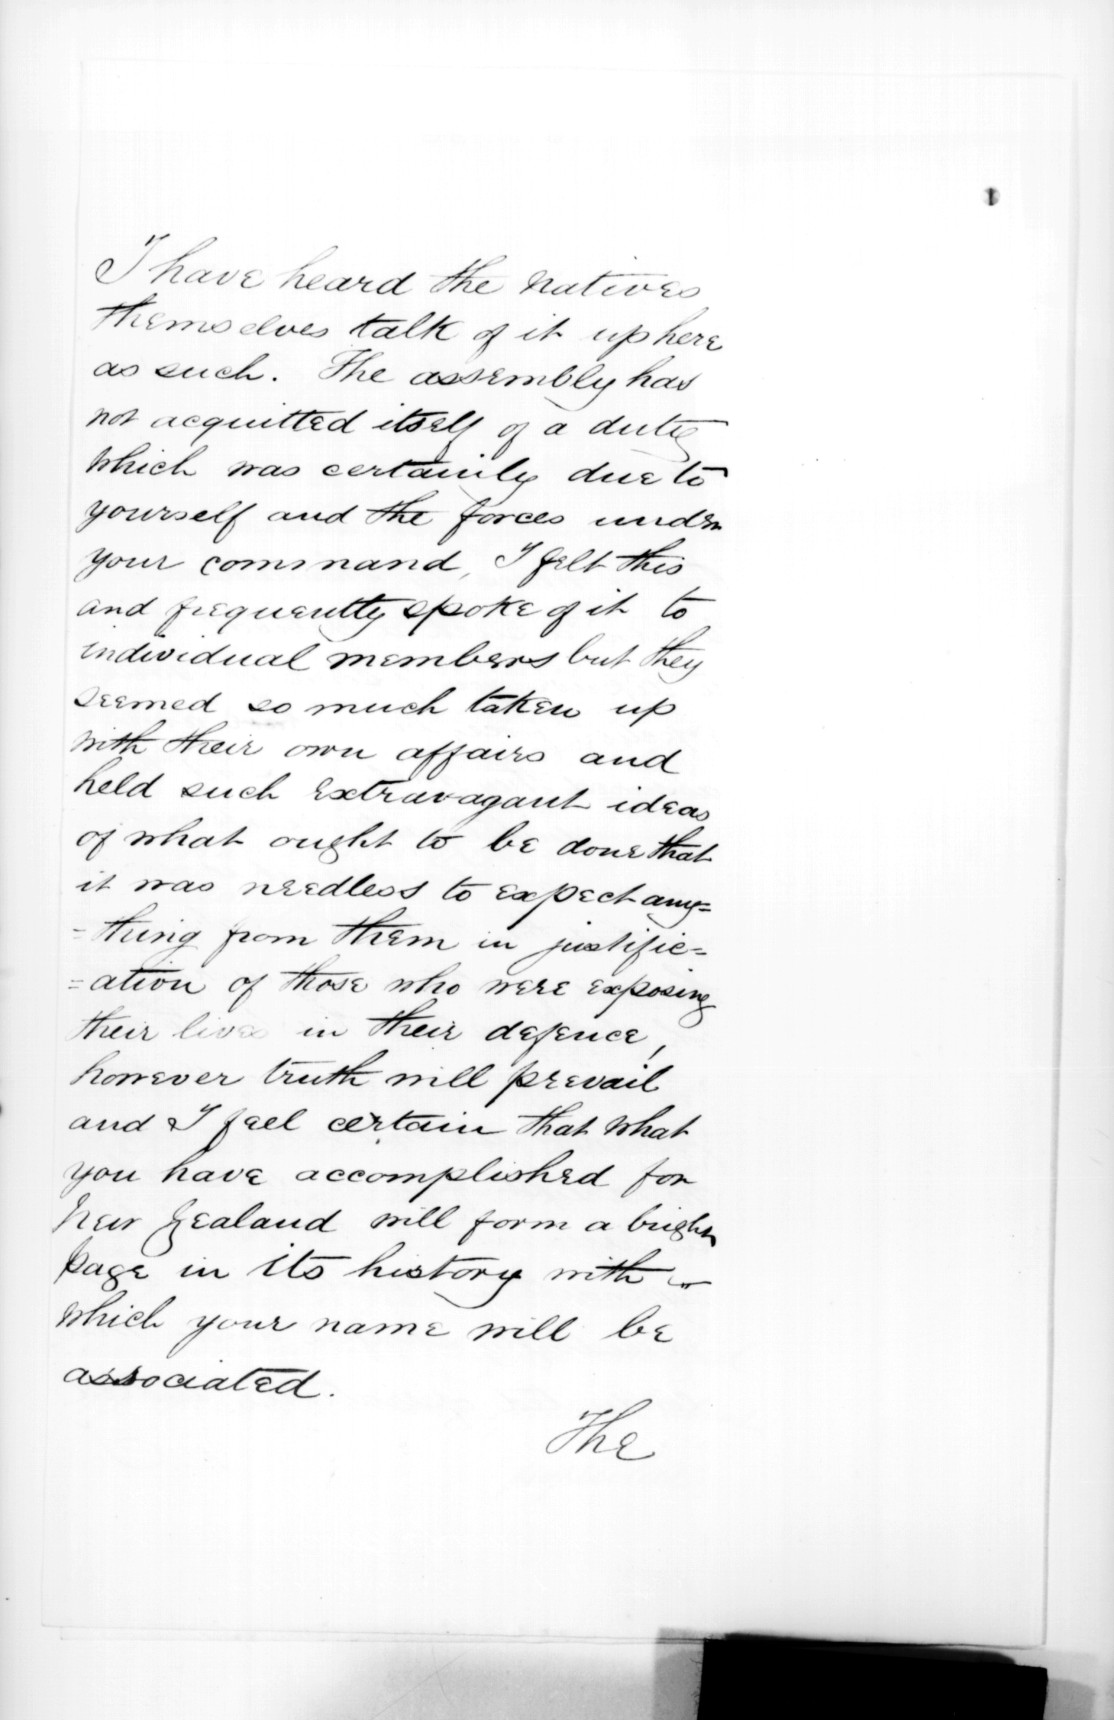 I have heard the Natives
themselves talk of it up here
as such. The assembly has
not acquitted itself of a duty
which was certainly due to
yourself and the forces under
your command, I felt this
and frequently spoke of it to
individual members but they
seemed so much taken up
with their own affairs and
held such extravagant ideas
of what ought to be done that
it was needless to expect any=
=thing from them in justific=
=ation of those who were exposing
their lives in their defence,
however truth will prevail
and I feel certain that what
you have accomplished for
New Zealand will form a bright
page in its history with
which your name will be
associated.
The